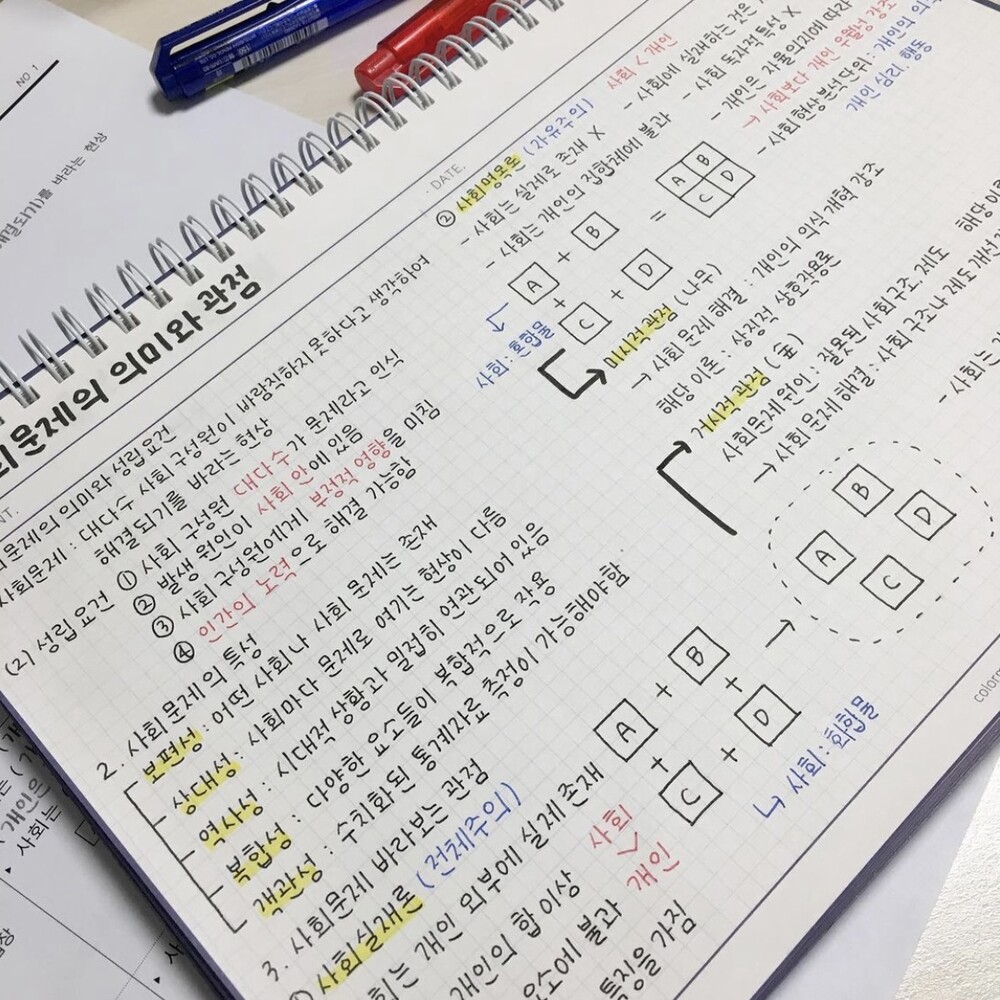 NO 1
해결되기)를 바라는 현상
문제의 의미와 관점
DATE.
문제의 의미와 성립요건
사회문제 : 대다수 사회 구성원이 바람직하지 못하다고 생각하여
해결되기를 바라는 현상
(2) 성립 요건 ① 사회 구성원 대다수가 문제라고 인식
② 발생 원인이 사회 안에 있음
③ 사회 구성원에게 부정적 영향을 미침
④ 인간의 노력으로 해결 가능함
2. 사회문제의 특성
보편성 : 어떤 사회나 사회 문제는 존재
상대성 : 사회마다 문제로 여기는 현상이 다름
역사성 : 시대적 상황과 밀접히 연관되어 있음
복합성 : 다양한 요소들이 복합적으로 작용
객관성 : 수치화된 통계자료 측정이 가능해야함
3. 사회문제 바라보는 관점
① 사회실재론 (전체주의)
개인의 외부에 실제 존재
개인의 합 이상
요소에 불과
특징을 가짐
사회 > 개인
A + B + C + D → A B C D
↳ 사회 : 화합물
② 사회명목론 (자유주의)
- 사회는 실제로 존재 X
- 사회는 개인의 집합체에 불과
A + B + C + D = A B C D
↳ 사회 : 혼합물
사회 < 개인
- 사회에 실재하는 것은
- 사회 독자적 특성 X
- 개인은 자율의지에 따라
→ 사회보다 개인 우월성 강조
- 사회현상 분석단위 : 개인의 의식
개인 심리 행동
미시적 관점 (나무)
→ 사회문제 해결 : 개인의 의식 개혁 강조
해당 이론 : 상징적 상호작용론
거시적 관점 (숲)
사회문제 원인 : 잘못된 사회구조, 제도
→ 사회문제 해결 : 사회구조나 제도 개선
해당
- 사회는
colorm